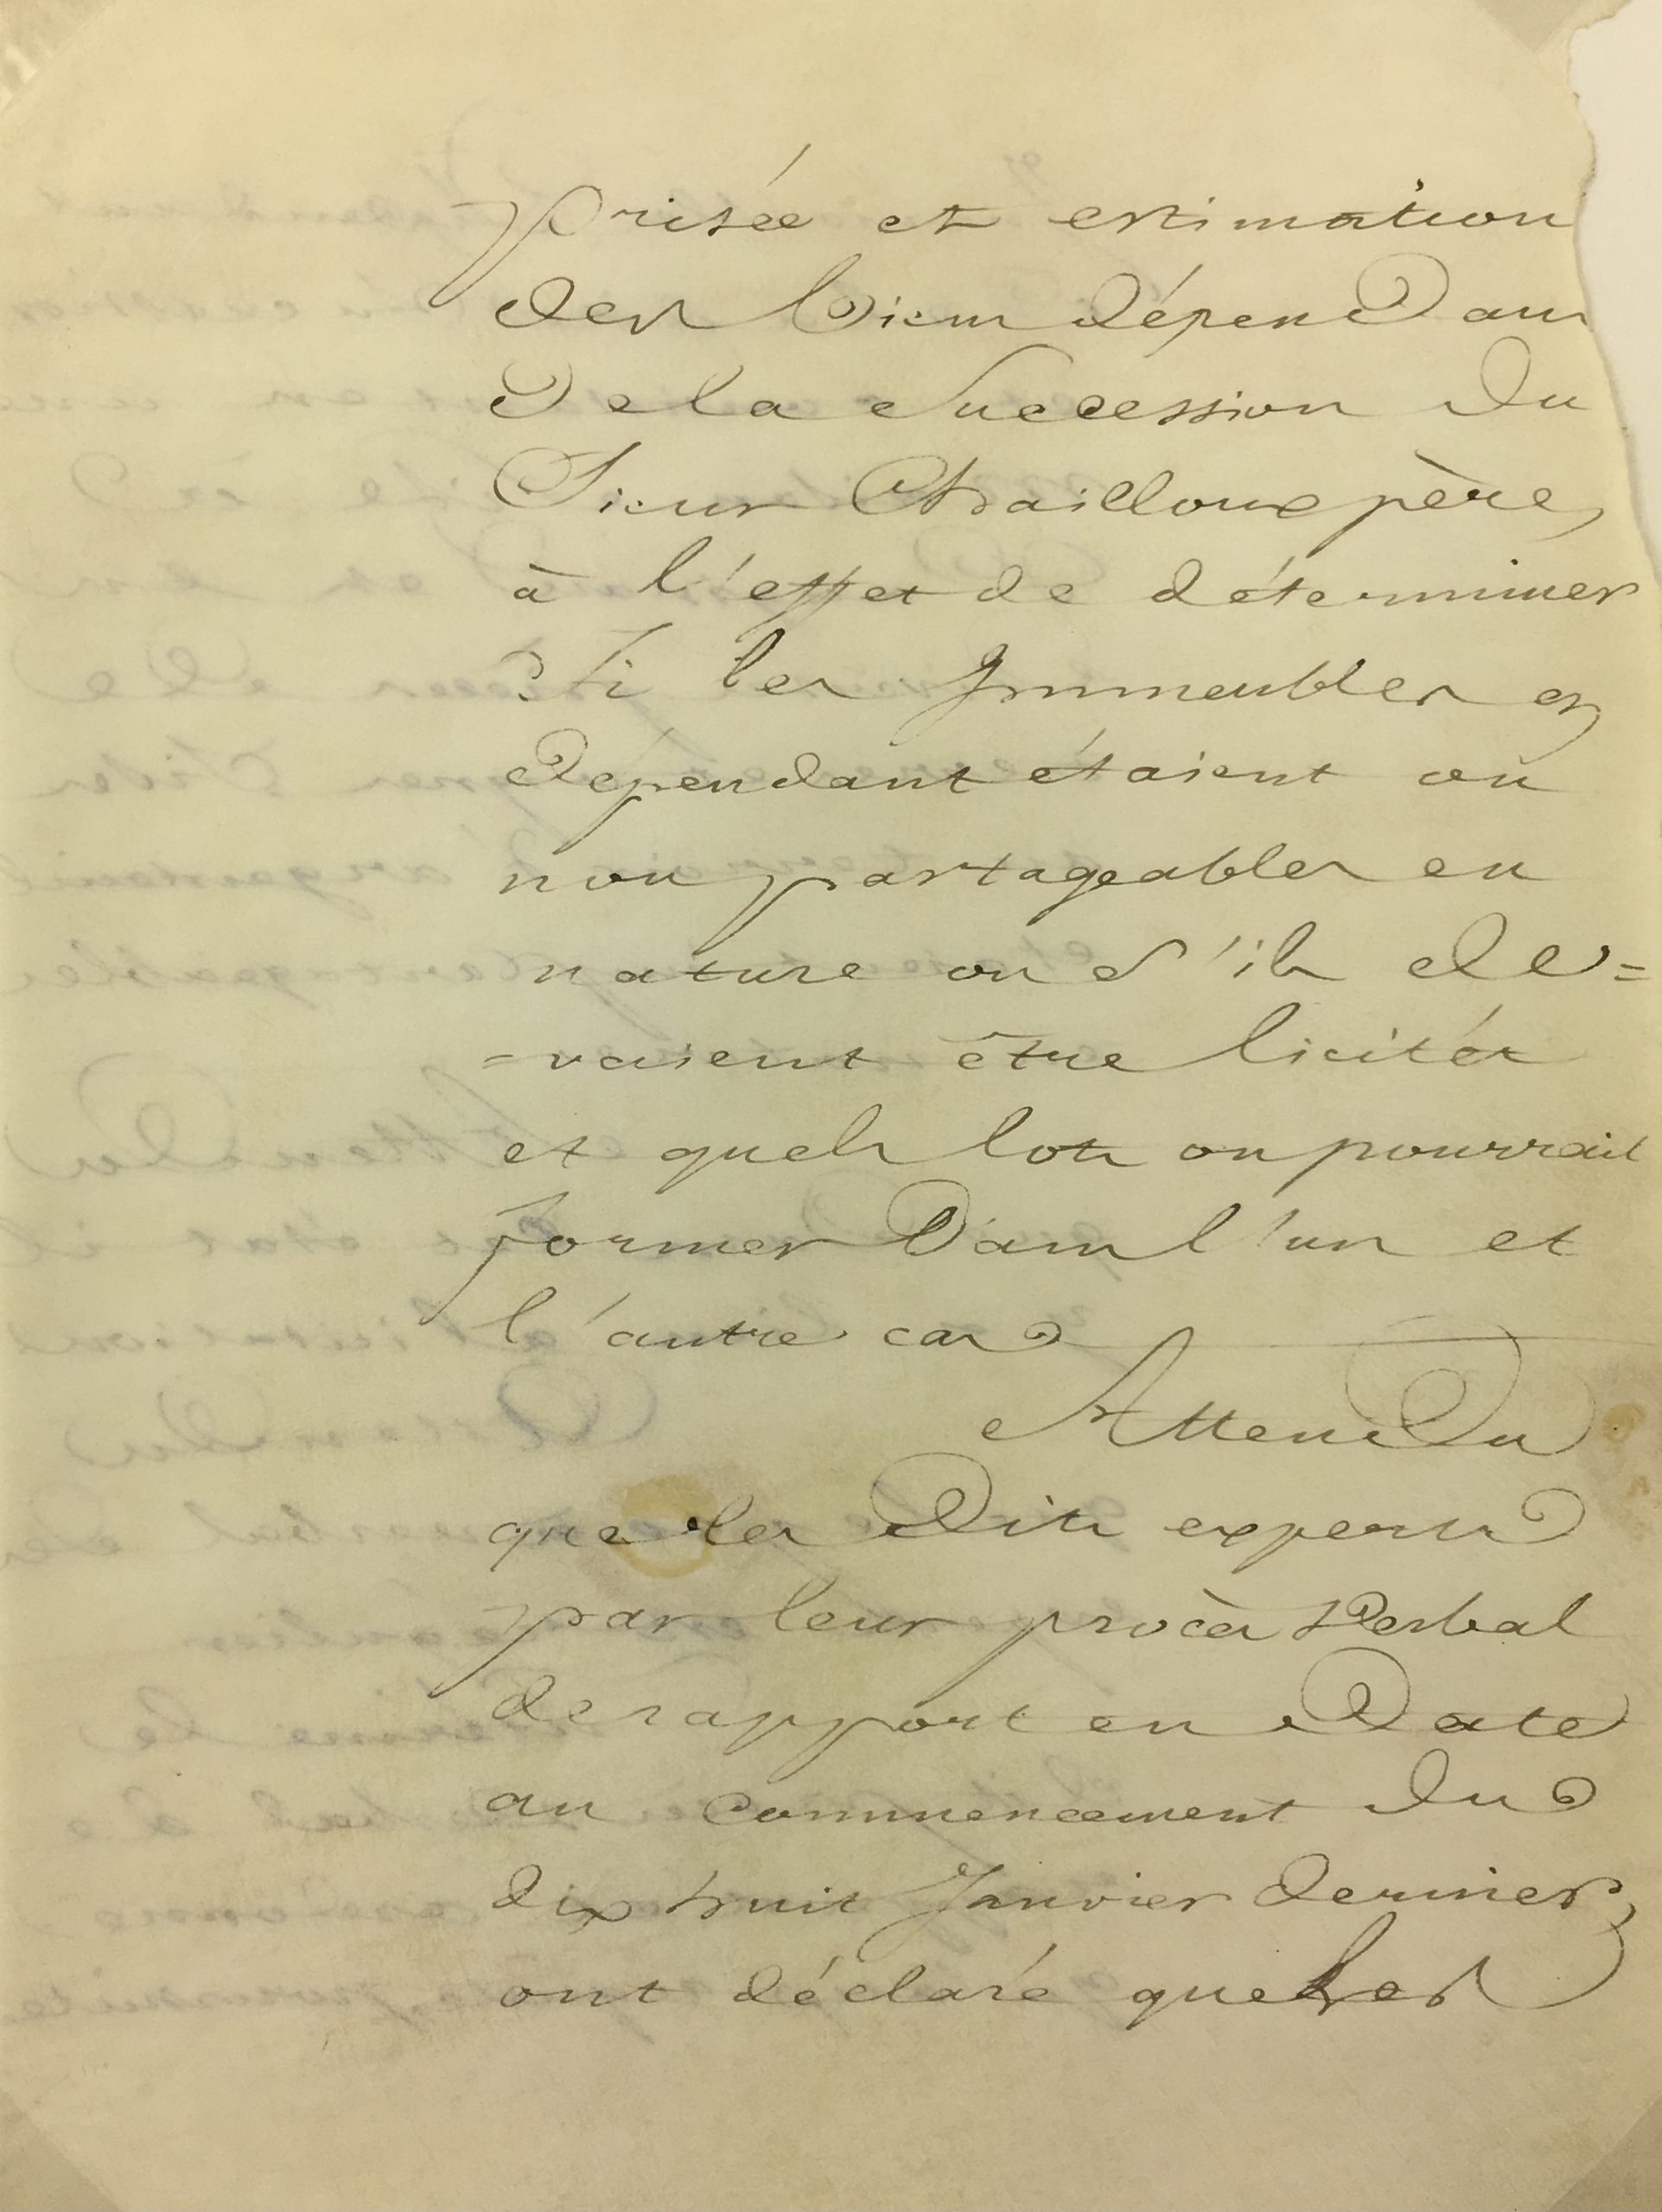 prisée et estimation
des biens dépendans
de la succession du
Sieur Chailloux père,
à l'effet de déterminer
si les Immeubles en
dépendant étaient ou
non partageables en
nature ou s'ils de=
=vaient être licités
et quels lots on pourrait
former dans l'un et
l'autre cas
Attendu
que les dits experts
par leur procès verbal
de rapport en date
au commencement du
dix huit Janvier dernier,
ont déclaré que les